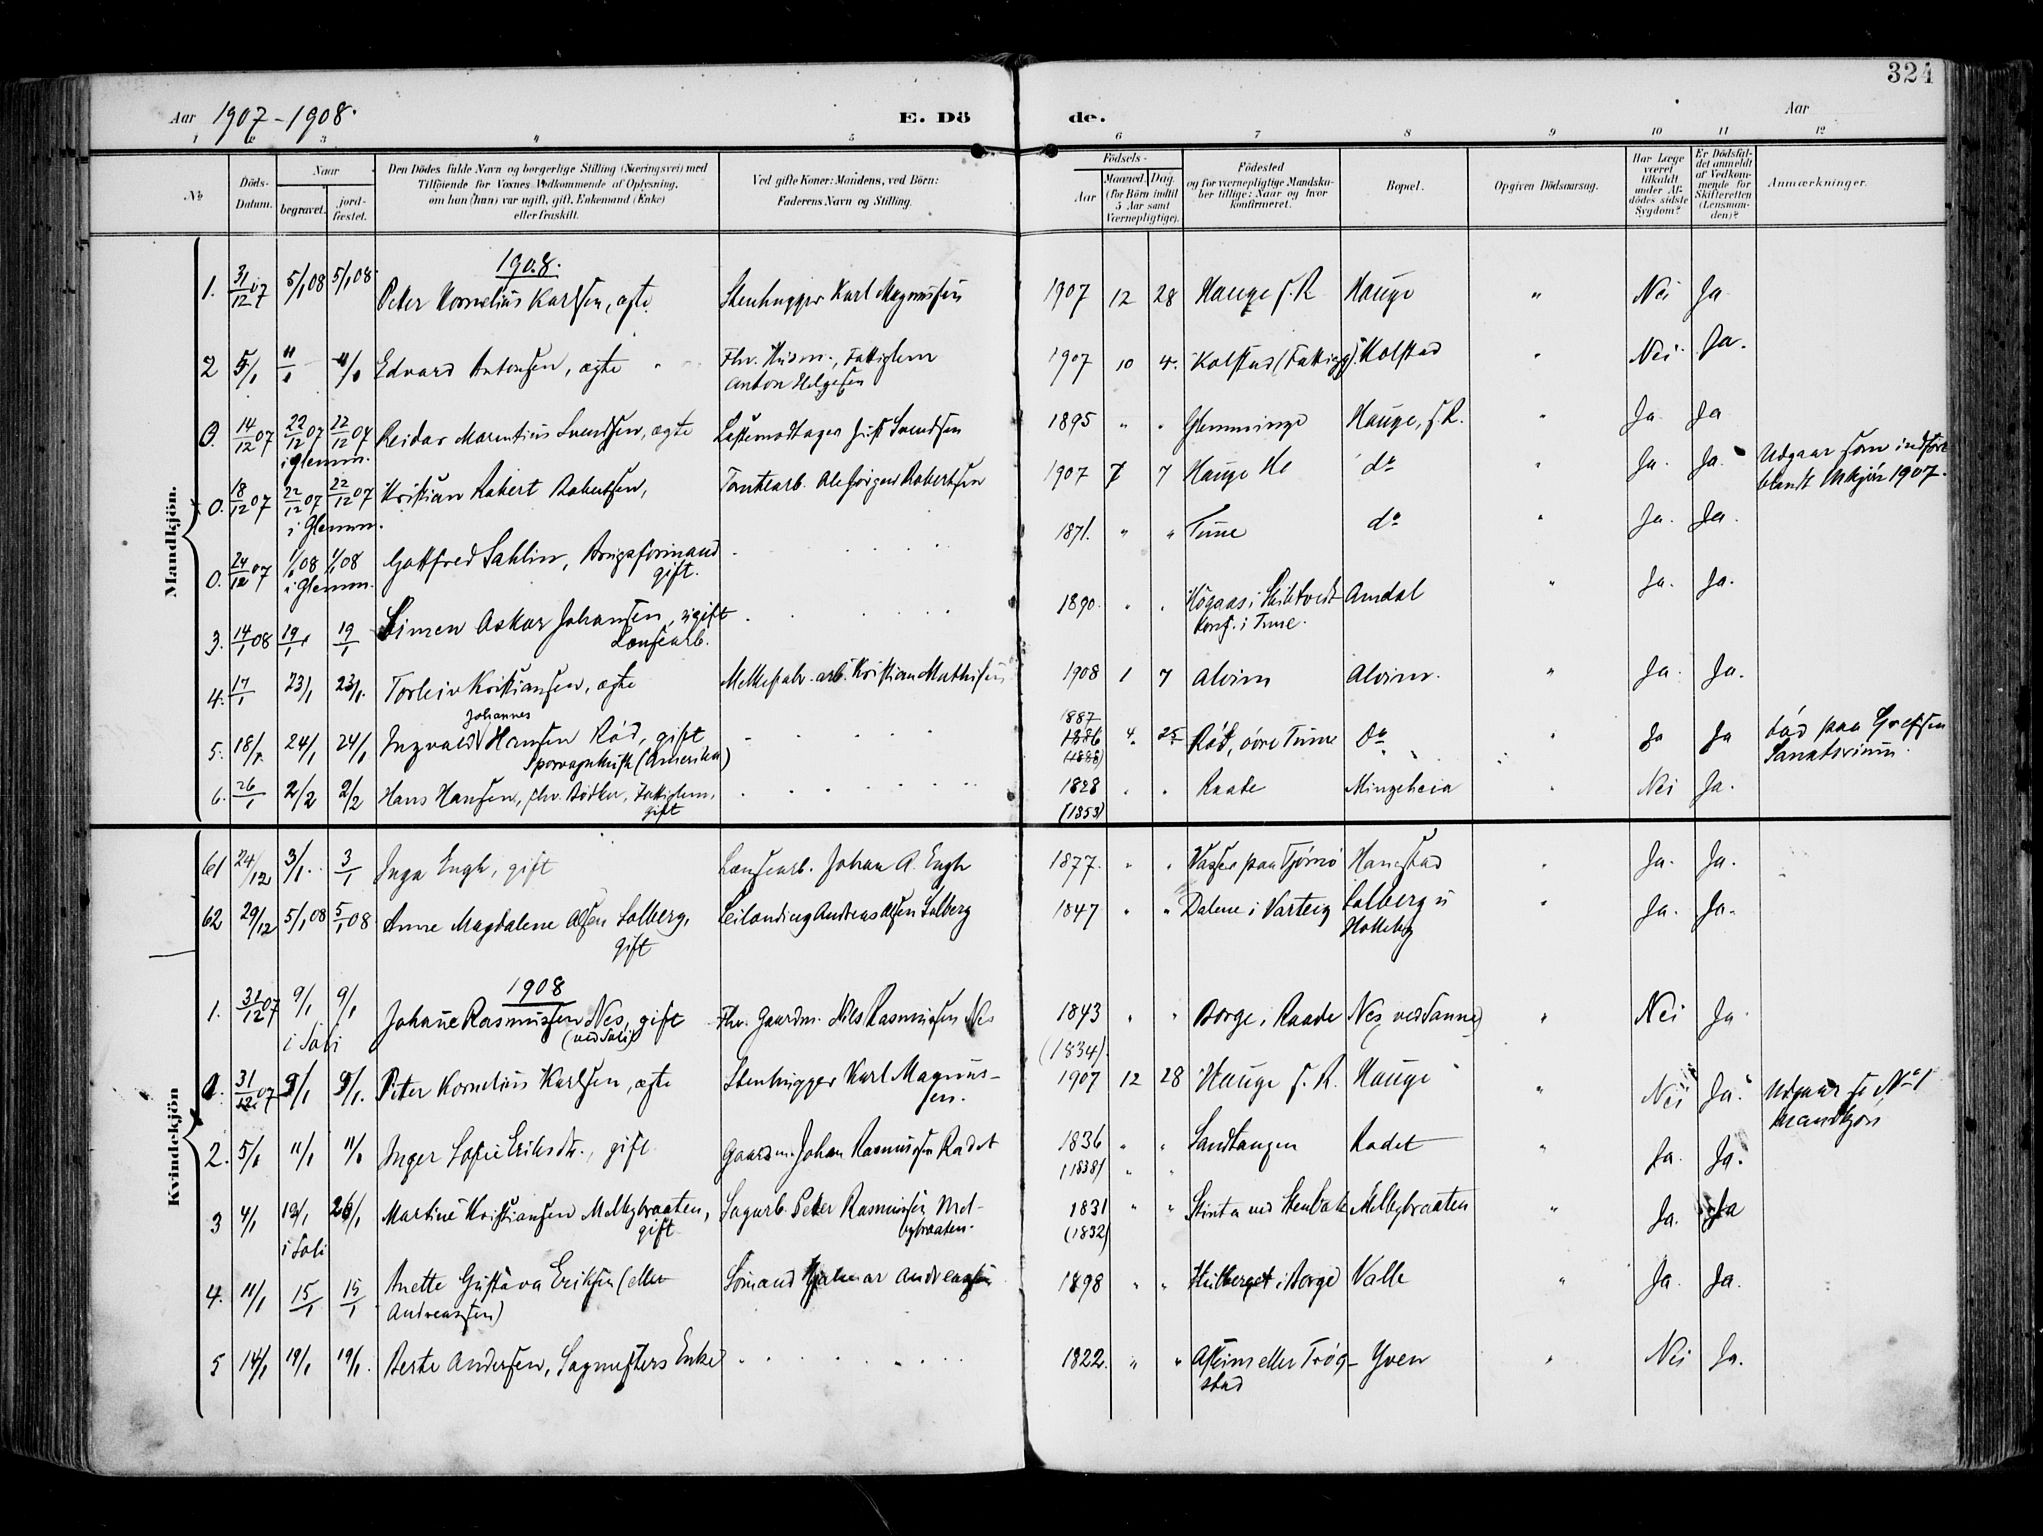 324
Aar 1907-1908. E. Dö de. Aar
1 2 3 4 5 6 7 8 9 10 11 12
No
Döds-Datum.
Naar
begravet.
jordfæstet.
Den Dödes fulde Navn og borgerlige Stilling (Næringsvei) med
Tilföiende for Voxnes Vedkommende af Oplysning,
om han (hun) var ugift, gift, Enkemand (Enke)
eller fraskilt.
Ved gifte Koner: Mandens, ved Börn:
Faderens Navn og Stilling.
Födsels-
Aar
Maaned. Dag.
(for Börn indtil
5 Aar samt
Værnepligtige).
Födested
og for værnepligtige Mandska-
ber tillige: Naar og hvor
konfirmeret.
Bopæl.
Opgiven Dödsaarsag.
Har Læge
været
tilkaldt
under Af-
dödes sidste
Sygdom?
Er Dödsfal-
det anmeldt
af Vedkom-
mende for
Skifteretten
(Lensman-
den)?
Anmærkninger.
Mandkjön.
1908.
1. 31/12 07 5/1 08 5/1 08 Peter Kornelius Karlsen, ægte. Stenhugger Karl Magnussen 1907 12 28 Hauge f. R Hauge " Nei Ja
2 5/1 11/1 11/1 Edvard Antonsen, ægte Fhv. Husm., Fattiglem 1907 10 4. Kolstad (Fattigg). Kolstad " Nei Ja.
Anton Helgesen
0. 14/12 07 22/12 07 22/12 07 Reidar Marentius Svendsen, ægte Lastemodtager Just Svendsen 1895 " " Glemminge Hauge, f. R. " Ja Ja
i Glemm.
0. 18/12 07 22/12 07 22/12 07 Kristian Robert Robertsen, Tomtearb. Ole Jörgen Robertsen 1907 7 7 Hauge do " Ja. Ja. Udgaar som indfört
i Glemm. blandt Mkjön 1907.
0. 24/12 07 1/1 08 1/1 08 Gottfred Sahlin, Brugsformand 1871. " " Tune do " Ja. Ja.
i Glemm. gift.
3. 14/1 08 19/1 19/1 Simen Oskar Johansen, ugift 1890. " " Högaas i Skibtvedt Amdal " Ja. Ja.
Lönsearb. konf. i Tune.
4. 17/1 23/1 23/1. Torleiv Kristiansen, ægte Melkefabr. arb. Kristian Mathisen 1908 1 7 Alvim Alvim. " Ja. Ja.
Johannes 1887
5. 18/1 24/1 24/1 Ingvald Hansen Röd, gift 1886 4. 25 Röd, övre Tune Do " Ja Ja död paa Grefsen
Sporvognkusk (Amerika) (1888) Sanatorium.
6. 26/1 2/2 2/2 Hans Hansen, fhv. Bödker, Fattiglem, 1828 " " Raade Mingeheia " Nei Ja.
gift (1853)
Kvindekjön
61 24/12 3/1. 3/1 Inga Engh, gift Johan A. Engh 1877. " " Vasser paa Tjömö Hanestad " Ja. Ja.
62 29/12 5/1 08 5/1 08 Anne Magdalene Olsen Solberg, Leilænding Andreas Olsen Solberg 1847 " " Dalene i Varteig Solberg u " Ja. Ja.
gift Holleby
1908
1. 31/12 07 9/1 9/1 Johane Rasmussen Nes, gift Fhv. Gaardm. Nils Rasmussen Nes 1843 " " Borge i Raade Nes ved Sanne " Nei Ja
i Soli (ved Soli) (1834).
0. 31/12 07 9/1 9/1. Peter Kornelius Karlsen, ægte Stenhugger Karl Magnus- 1907 12 28 Hauge f. R. Hauge " Nei Ja. Udgaar se No 1
sen. Mandkjön
2. 5/1 11/1 11/1 Inger Sofie Eriksdtr., gift Gaardm. Johan Rasmussen Rödet 1836 " " Sandtangen Rödet " Ja. Ja.
(1838) " "
3 4/1 12/1 26/1 Martine Kristiansen Melbybraaten, Sagarb. Peter Rasmussen Mel- 1831 " " Melbybraaten " Ja. Ja
i Soli gift bybraaten. (1832)
4. 11/1 15/1 15/1 Anette Gustava Eriksen (eller Sömand Hjalmar Andreassen 1898 " " i Borge Valle " Ja. Ja.
Andreassen)
5 14/1 19/1 19/1. Berte Andersen, Sagmesters Enke 1822. " " Askim eller Trög- Yven " Nei Ja.
stad